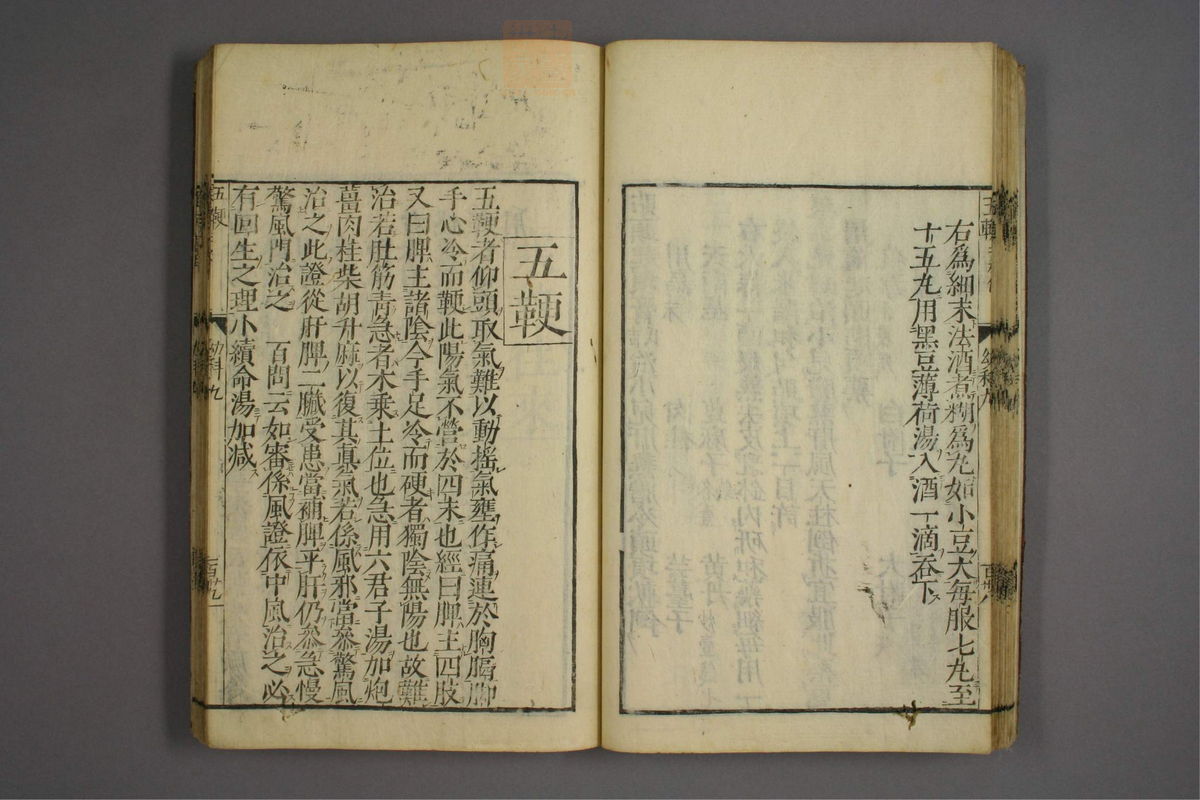 右爲細末法酒煮糊爲丸如小豆大每服七丸至
十五丸用黑豆薄荷湯入酒一滴呑下
幼科九
百廿八
五鞕
五鞕者仰頭取氣難以動搖氣壅作痛連於胸膈脚
手心冷而鞕此陽氣不營於四末也經曰脾主四肢
又曰脾主諸陰今手足冷而硬者獨陰無陽也故難
治若肚筋靑急者木乘土位也急用六君子湯加炮
薑肉桂柴胡升麻以復其眞氣若係風邪當參驚風
治之此證從肝脾二臟受患當補脾平肝仍參急慢
驚風門治之 百問云如審係風證依中風治之必
有回生之理小續命湯加減
五鞕
幼科九
百廿九